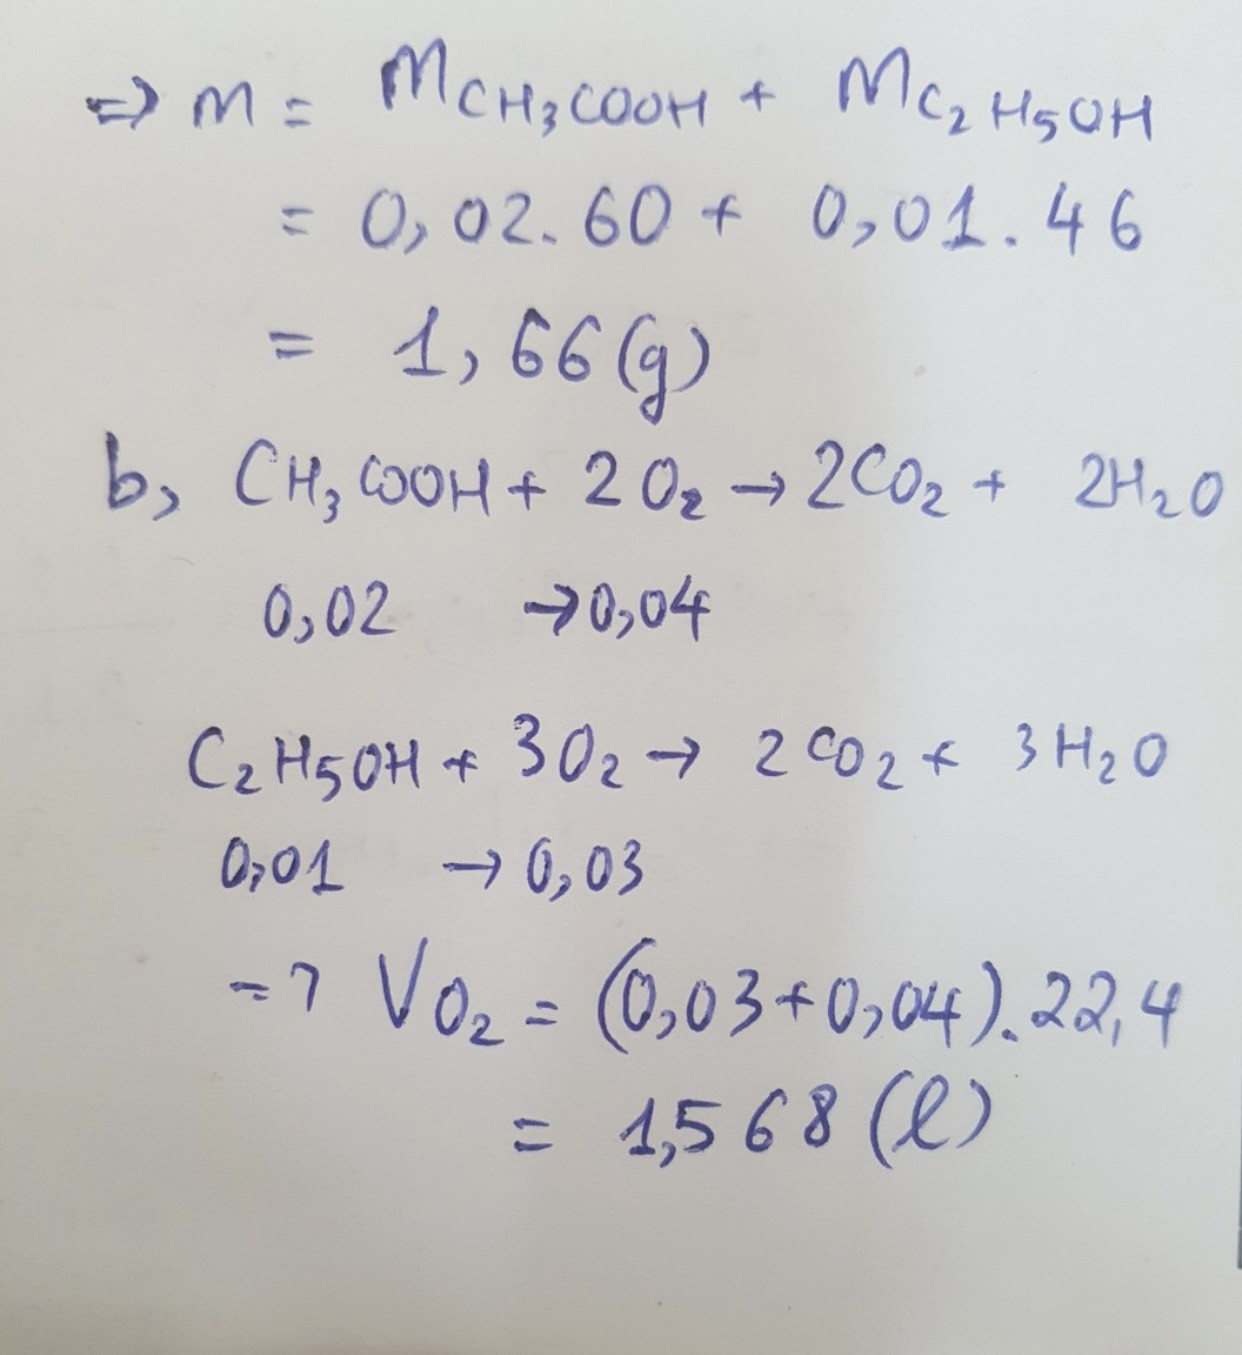 => m = mCH₃COOH + mC₂H₅OH
= 0,02.60 + 0,01.46
= 1,66(g)
b, CH₃COOH + 2O₂ → 2CO₂ + 2H₂O
0,02 → 0,04
C₂H₅OH + 3O₂ → 2CO₂ + 3H₂O
0,01 → 0,03
=> VO₂ = (0,03+0,04).22,4
= 1,568 (l)